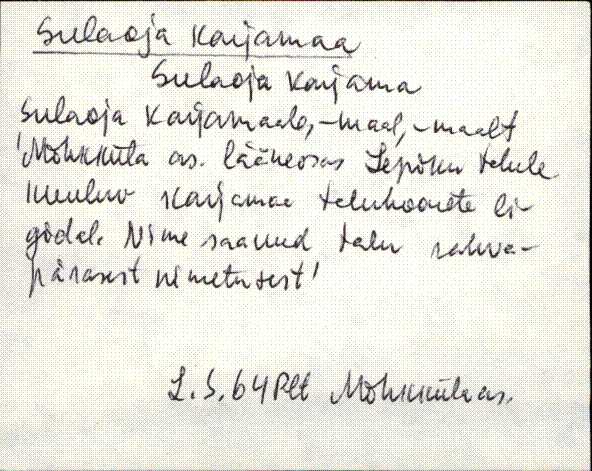 Sulaoja Karjamaa
Sulaoja Karjama
Sulaoja Karjamaale, -maal, -maalt
'Mõhkküla as. lääneosas Lepiku talule
kuuluv karjamaa taluhoonete li-
gidal. Nime saanud talu rahva-
pärasest nimetusest'
L. S. 64 Plt Mõhkküla as.